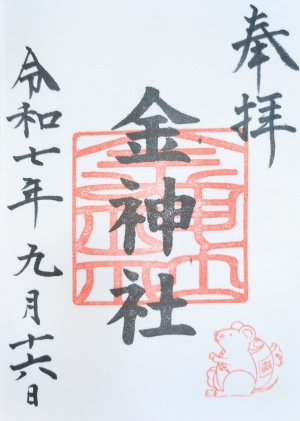 奉拝
金神社
令和七年九月十六日